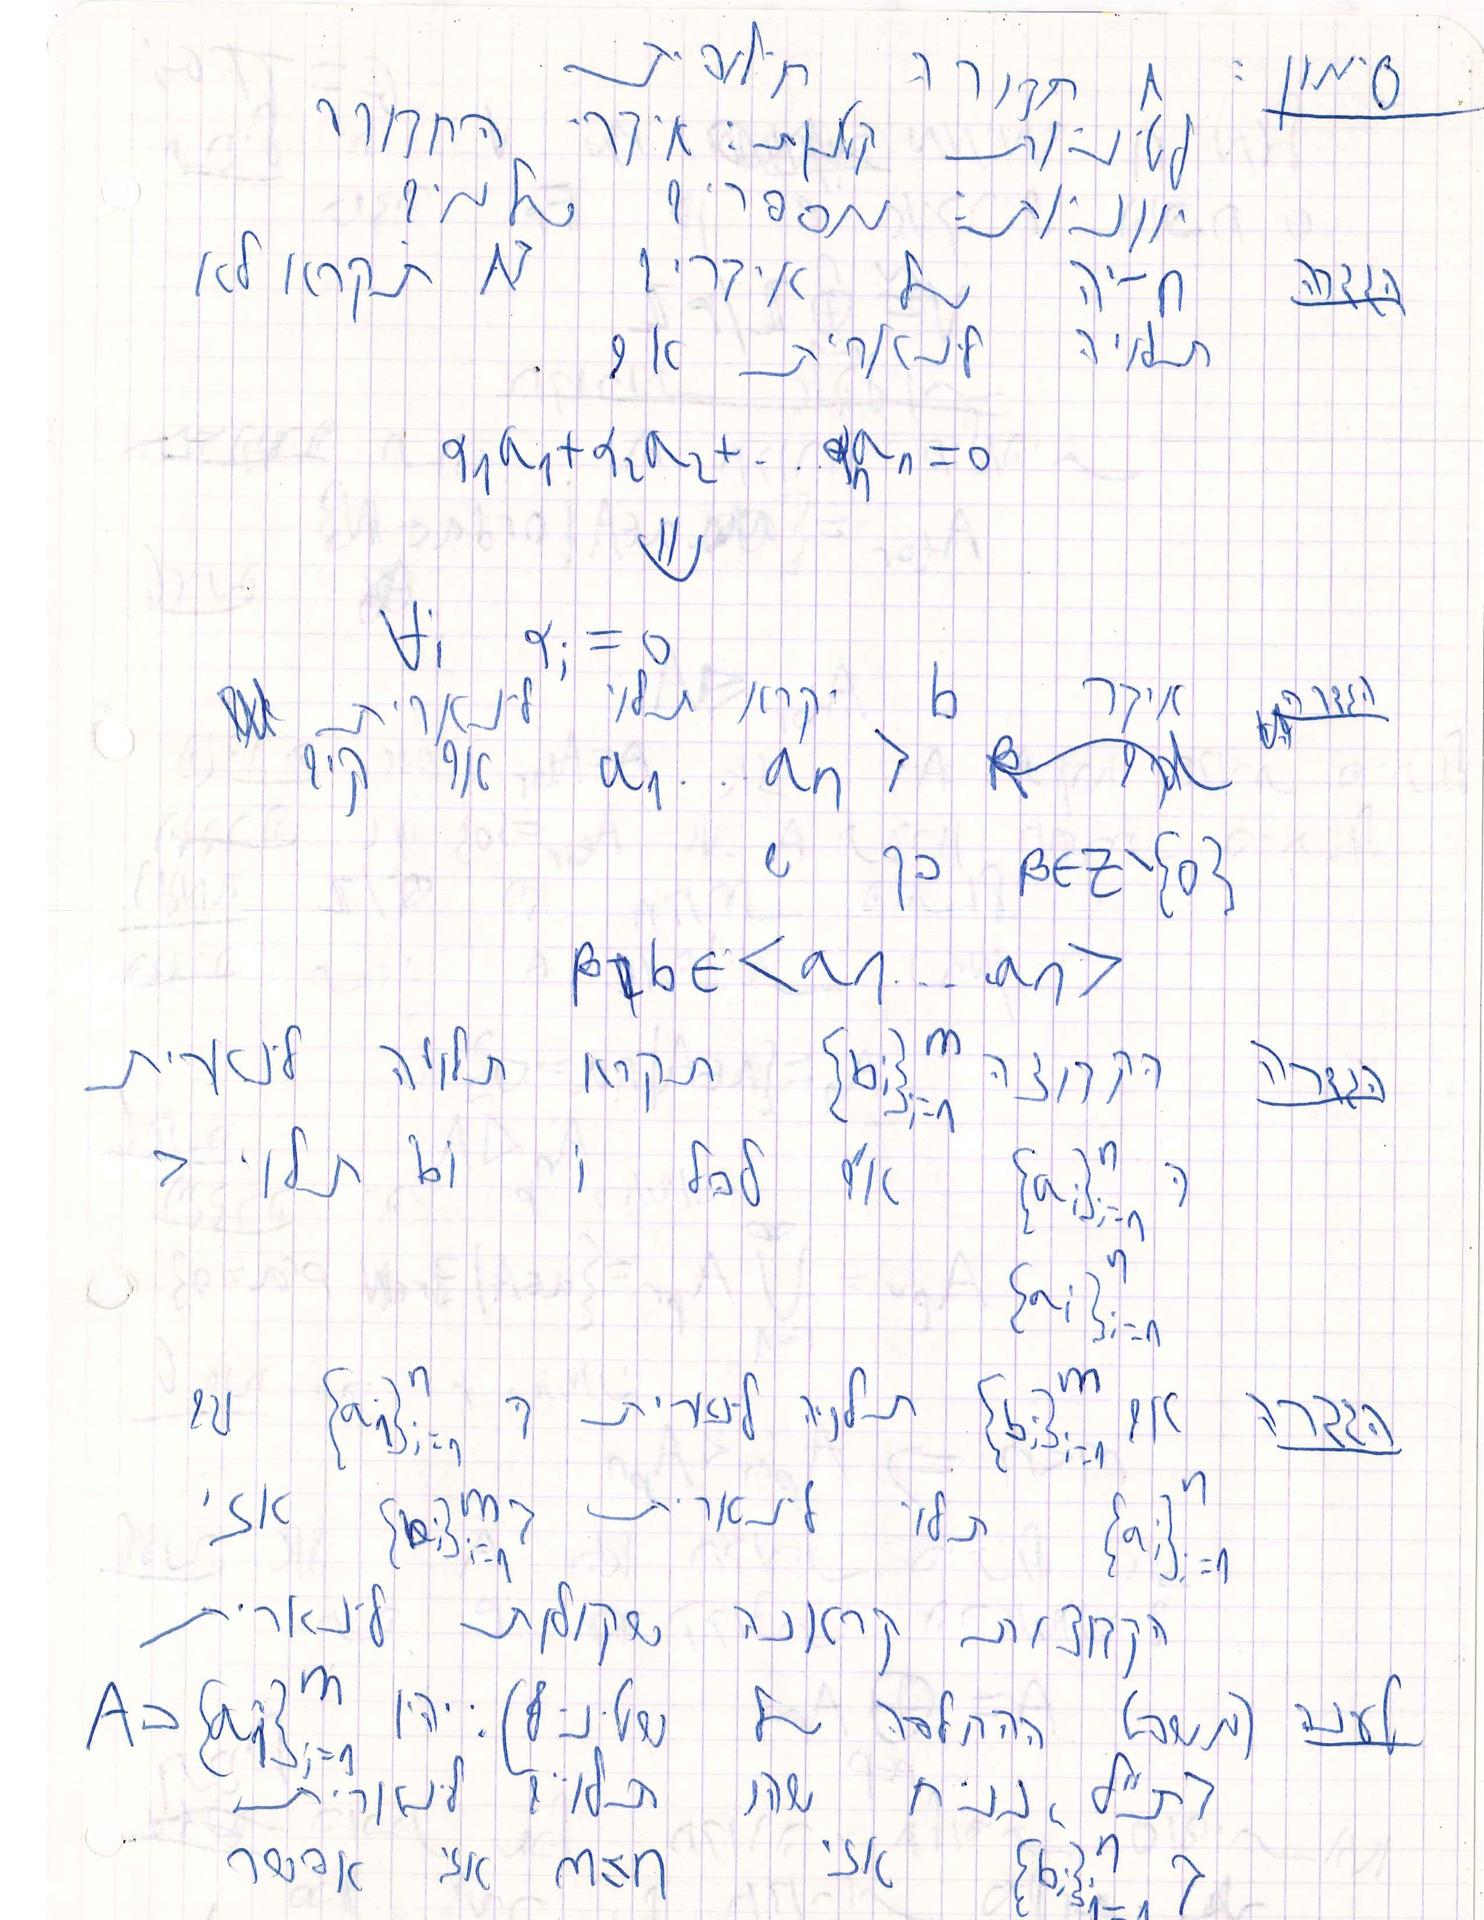 סימון: A חבורה חילופית
לטיניות קטנות: איברי החבורה
יווניות: מספרים שלמים
הגדרה n-יה של איברים ב A תקרא לא
תלויה לינארית אם
α₁a₁+α₂a₂+...αₙaₙ=0
⇓
∀i αᵢ=0
הגדרה איבר b יקרא תלוי לינארית
ב a₁...aₙ אם קיים
β∈Z\{0} כך ש
βb∈<a₁...aₙ>
הגדרה הקבוצה {bᵢ}ᵢ₌₁ᵐ תקרא תלויה לינארית
ב {aᵢ}ᵢ₌₁ⁿ אם לכל i bi תלוי ב
{aᵢ}ᵢ₌₁ⁿ
הגדרה אם {bᵢ}ᵢ₌₁ᵐ תלויה לינארית ב {aᵢ}ᵢ₌₁ⁿ וגם
{aᵢ}ᵢ₌₁ⁿ תלוי לינארית ב {bᵢ}ᵢ₌₁ᵐ אזי
הקבוצות קראנה שקולות לינארית
למה (משפט ההחלפה של שטיניץ): יהיו {aᵢ}ᵢ₌₁ᵐ ⊂A
בת"ל, נניח שהן תלויים לינארית
ב {bᵢ}ᵢ₌₁ⁿ אזי n≥m אזי אפשר